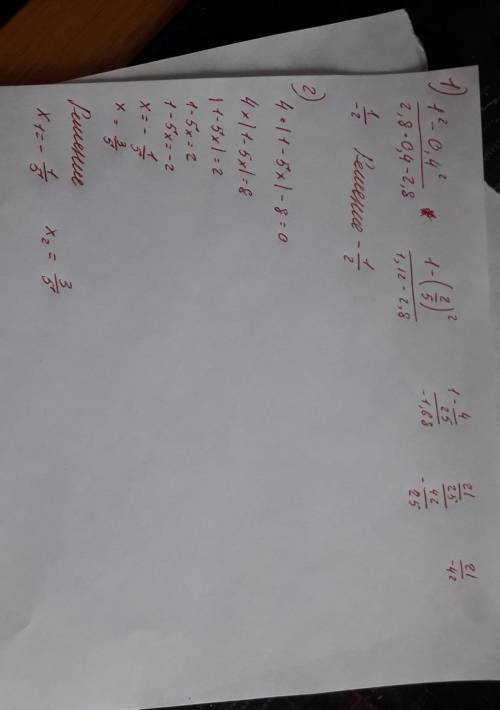 1) (1² - 0,4²)/(2,8·0,4-2,8) * (1-(2/5)²)/(1,12-2,8) (1-4/25)/(-1,68) (21/25)/(-42/25) 21/-42
1/-2 Решение -1/2
2)
4·|1+5x|-8=0
4×|1-5x|=8
|1+5x|=2
1-5x=2
1-5x=-2
x=-1/5
x=3/5
Решение
x1=-1/5 x2=3/5